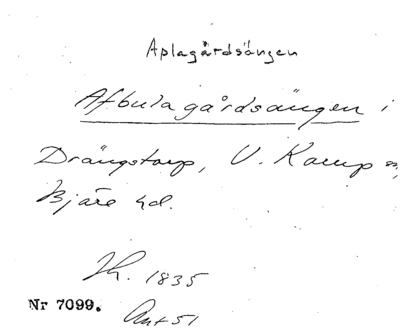 Aplagårdsängen
Afbulagårdsängen i
Drängstorp, V. Karup sn,
Bjäre hd.
Jh. 1835
Nr 7099.
Ant 51